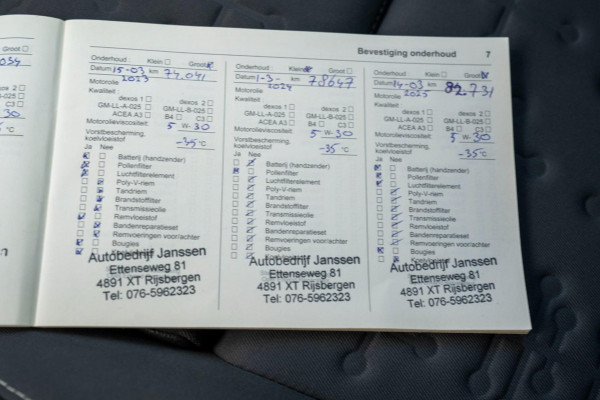 Bevestiging onderhoud 7
Groot
2
C3
°C
Onderhoud : Klein Groot
Datum 15-03 2023 km 74.041
Motorolie
Kwaliteit :
dexos 1 dexos 2
GM-LL-A-025 GM-LL-B-025
ACEA A3 B4 C3
Motorolieviscositeit: 5 W-30
Vorstbescherming,
koelvloeistof -35 °C
Ja Nee
Batterij (handzender)
Pollenfilter
Luchtfilterelement
Poly-V-riem
Tandriem
Brandstoffilter
Transmissieolie
Remvloeistof
Bandenreparatieset
Remvoeringen voor/achter
Bougies
Autobedrijf Janssen
Ettenseweg 81
4891 XT Rijsbergen
Tel: 076-5962323
Onderhoud : Klein Groot
Datum 1-3- 2024 km 78647
Motorolie
Kwaliteit :
dexos 1 dexos 2
GM-LL-A-025 GM-LL-B-025
ACEA A3 B4 C3
Motorolieviscositeit: 5 W-30
Vorstbescherming,
koelvloeistof -35 °C
Ja Nee
Batterij (handzender)
Pollenfilter
Luchtfilterelement
Poly-V-riem
Tandriem
Brandstoffilter
Transmissieolie
Remvloeistof
Bandenreparatieset
Remvoeringen voor/achter
Bougies
Autobedrijf Janssen
Ettenseweg 81
4891 XT Rijsbergen
Tel: 076-5962323
Onderhoud : Klein Groot
Datum 14-03 2025 km 82.731
Motorolie
Kwaliteit :
dexos 1 dexos 2
GM-LL-A-025 GM-LL-B-025
ACEA A3 B4 C3
Motorolieviscositeit: 5 W-30
Vorstbescherming,
koelvloeistof -35 °C
Ja Nee
Batterij (handzender)
Pollenfilter
Luchtfilterelement
Poly-V-riem
Tandriem
Brandstoffilter
Transmissieolie
Remvloeistof
Bandenreparatieset
Remvoeringen voor/achter
Bougies
Autobedrijf Janssen
Ettenseweg 81
4891 XT Rijsbergen
Tel: 076-5962323